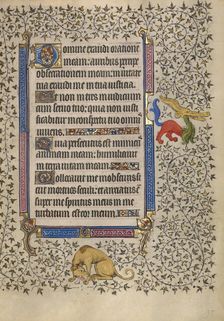 Domine exaudi orationē
meam: auribus percipe
obsecrationem meam: in uerita
te tua exaudi me in tua iusticia
Et non intres in iudicium
cum seruo tuo: quia non iusti
ficabitur in conspectu tuo omnis
uiuens
Quia persecutus est inimicus
animam meam: humiliauit
in terra uitam meam
Collocauit me in obscuris si
cut mortuos seculi: et anxiatus ē
super me spiritus meus in me
turbatum est cor meum